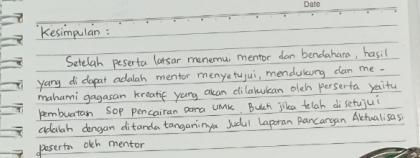 Date
Kesimpulan :
Setelah peserta latsar menemui mentor dan bendahara, hasil
yang di dapat adalah mentor menyetujui, mendukung dan me-
mahami gagasan kreatif yang akan dilakukan oleh perserta yaitu
pembuatan SOP pencairan dana UMK. Bukti jika telah disetujui
adalah dengan ditanda tanganinya Judul Laporan Rancangan Aktualisasi
peserta oleh mentor